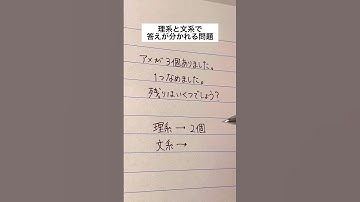 理系と文系で
答えが分かれる問題
アメが3個ありました。
1つなめました。
残りはいくつでしょう?
理系 → 2個
文系 →